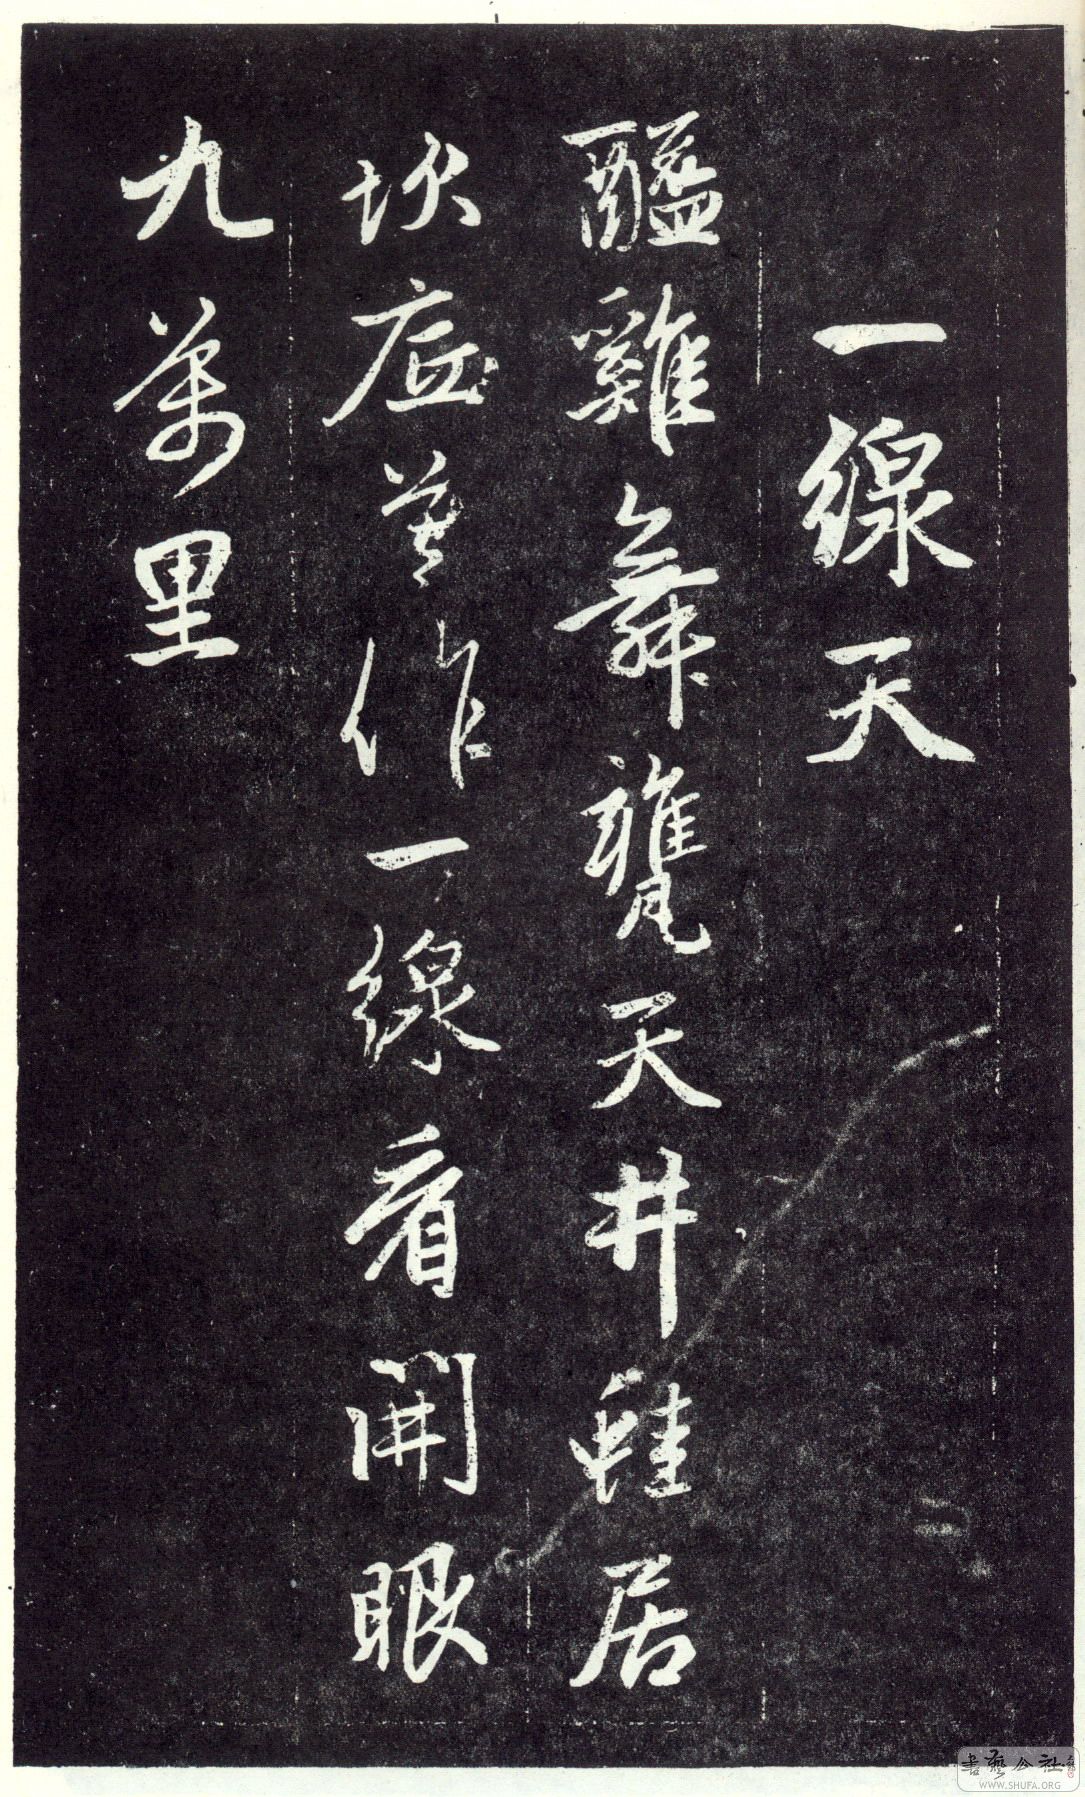 一線天
醯雞舞甕天井蛙居
坎底莫作一線看開眼
九萬里
書藝公社
WWW.SHUFA.ORG